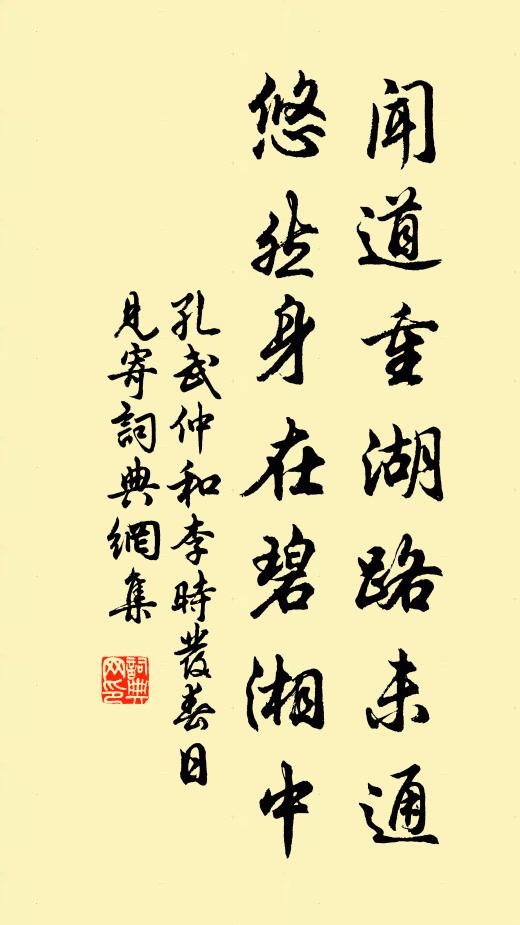 聞道重湖路未通
悠然身在碧湘中
孔武仲和李時發春日
見寄詞典網集
詞典網印